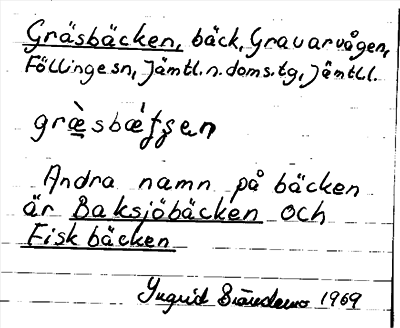 Gräsbäcken, bäck, Gravarvågen,
Föllinge sn, Jämtl. n. doms. tg, Jämtl l.
græ̀sbǽʃʃen
Andra namn på bäcken
är Baksjöbäcken och
Fiskbäcken
Ingrid 1969